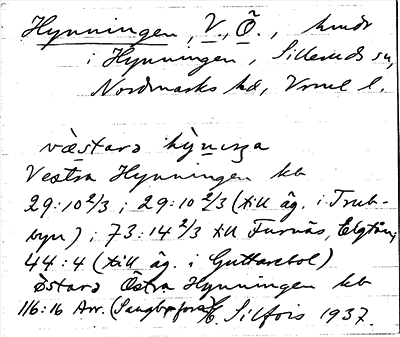 Hynningen, V., Ö., hmdr
i Hynningen, Sillerud sn,
Nordmarks hd, Vrml l.
västarə hỳniŋa
Västra Hynningen kb
29:10 2/3; 29:10 2/3 (till äg. i Trub-
byn); 73:14 2/3 till Furnäs, Elgtan;
44:4 (till äg. i Guttarebol)
östarə Östra Hynningen kb
116:16 Arr. 
Silfors 1937.